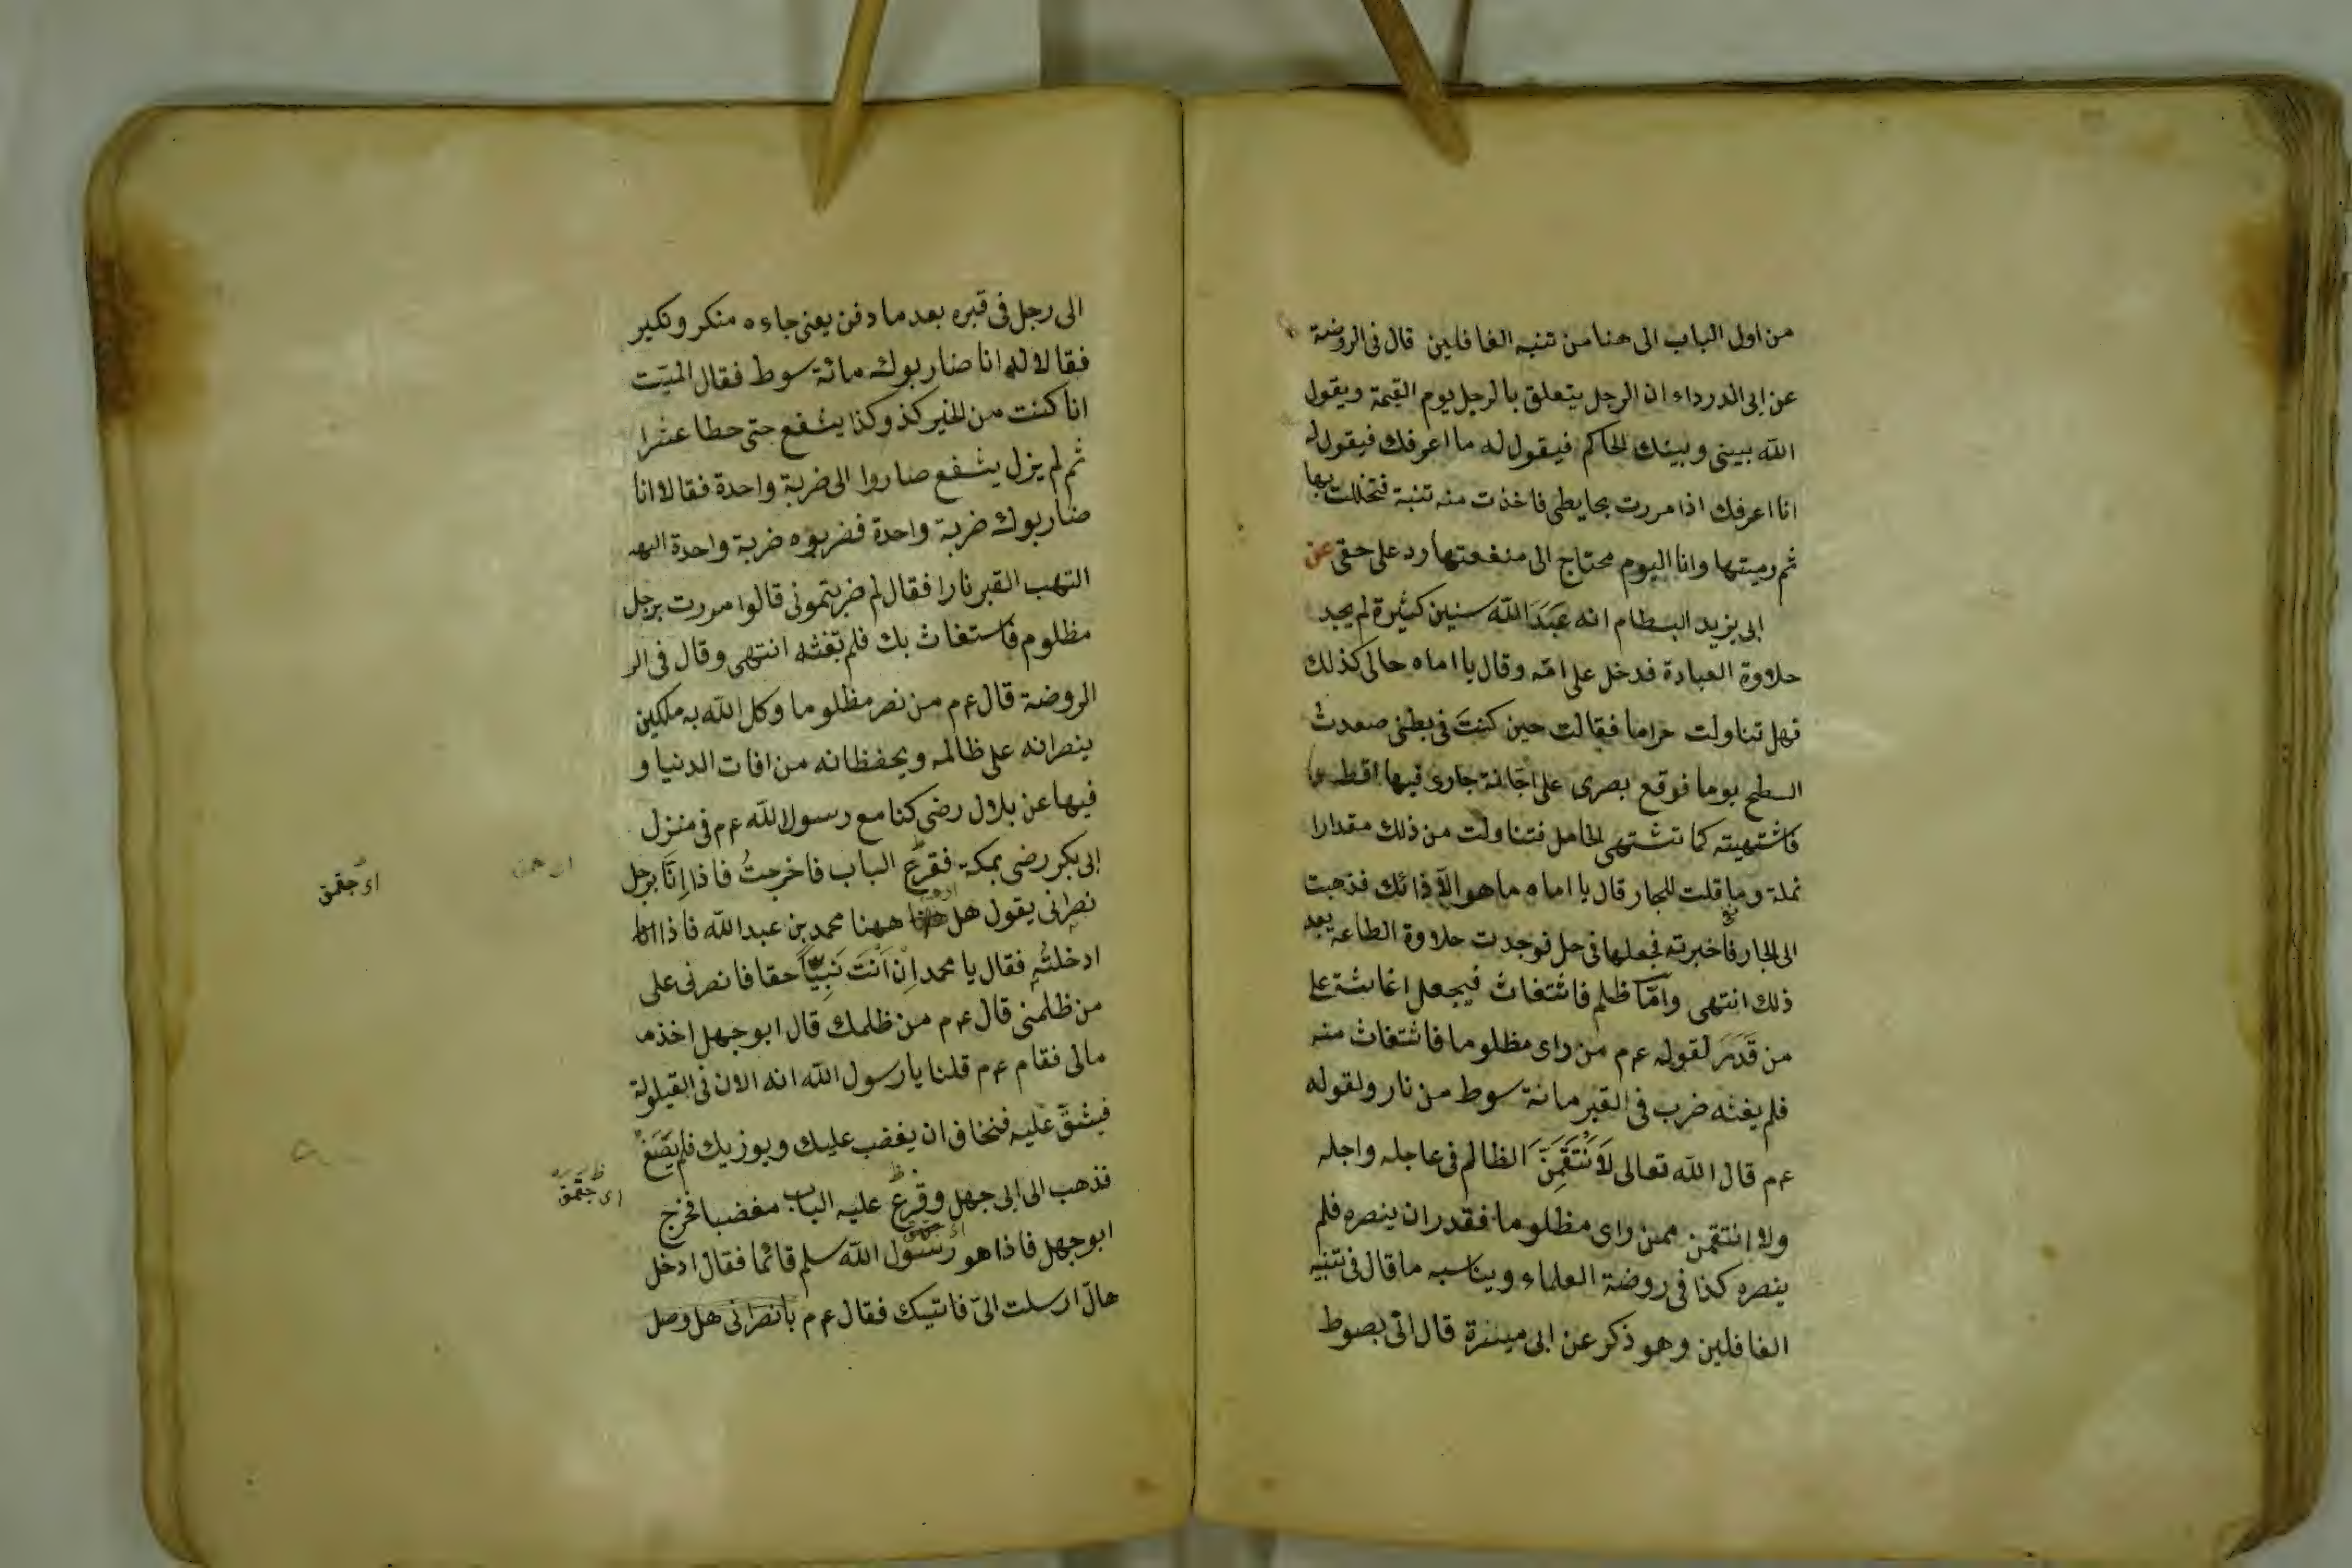 من اول الباب الى هنا من تنبه الغافلين قال فى الروضة
عن ابى الدرداء ان الرجل يتعلق بالرجل يوم القيمة ويقول
الله بينى وبينك الحاكم فيقول له ما اعرفك فيقول له
انا اعرفك اذا مررت بحايطى فاخذت منه تنبة فتخللت بها
ثم رميتها وانا اليوم محتاج الى منفعتها رد على حقى عن
ابى يزيد البسطام انه عَبَدَ الله سنين كثيرة لم يجد
حلاوة العبادة فدخل على امّه وقال يا اماه حالى كذلك
فهل تناولت حراما فقالت حين كنتَ فى بطنى صعدت
السطح يوما فوقع بصرى على اجّانة جارى فيها اقط
فاشتهيته كما تشتهى الحامل فتناولت من ذلك مقدارا
نملة وما قلت للجار قال يا اماه ما هو الّا ذائك فذهبت
الى الجار فاخبرته فجعلها فى حل فوجدت حلاوة الطاعة بعد
ذلك انتهى وامّا ظلم فاشتغاث فيجعل اغاثته على
من قَدَرَ لقوله عم من راى مظلوما فاشتغاث منه
فلم يغثه ضرب فى القبر مائة سوط من نار ولقوله
عم قال الله تعالى لَاَنْتَقِمَنَّ الظالم فى عاجله واجله
ولا انتقمن ممن راى مظلوما فقدر ان ينصره فلم
ينصره كذا فى روضة العلماء ويناسبه ما قال فى تنبيه
الغافلين وهو ذكر عن ابى ميسرة قال اتى بصوط
الى رجل فى قبره بعد ما دفن يعنى جاءه منكر ونكير
فقالا له انا ضاربوك مائة سوط فقال الميّت
انا كنت من الخير كذ وكذا يشفع حتى حطا عشرا
ثم لم يزل يشفع صاروا الى ضربة واحدة فقالا انا
ضاربوك ضربة واحدة فضربوه ضربة واحدة
التهب القبر نارا فقال لم ضربتمونى قالوا مررت برجل
مظلوم فاستغاث بك فلم تغثه انتهى وقال فى الر
الروضة قال عم من نصر مظلوما وكل الله به ملكين
ينصرانه على ظالمه ويحفظانه من افات الدنيا و
فيها عن بلال رضى كنا مع رسول الله عم فى منزل
ابى بكر رضى بمكة فقرع الباب فاخرجتُ فاذا اِنّا برجل
اى جقمق
نصرانى يقول هل ههنا محمد بن عبد الله فاذا
ادخلتُه فقال يا محمد اِن اَنْتَ نَبِيّاً حقا فانصرنى على
من ظلمنى قال عم من ظلمك قال ابو جهل اخذ
مالى فقام عم قلنا يا رسول الله انه الان فى القيلولة
فيشقّ عليه فنخاف ان يغضب عليك ويوزيك فلم يَصَغْ
فذهب الى ابى جهل وقرع عليه الباب مغضبا فخرج
اى جقمق
ابو جهل فاذا هو رسول الله سلم قائما فقال ادخل
هال ارسلت الىّ فاتيك فقال عم يا نصرانى هل وصل